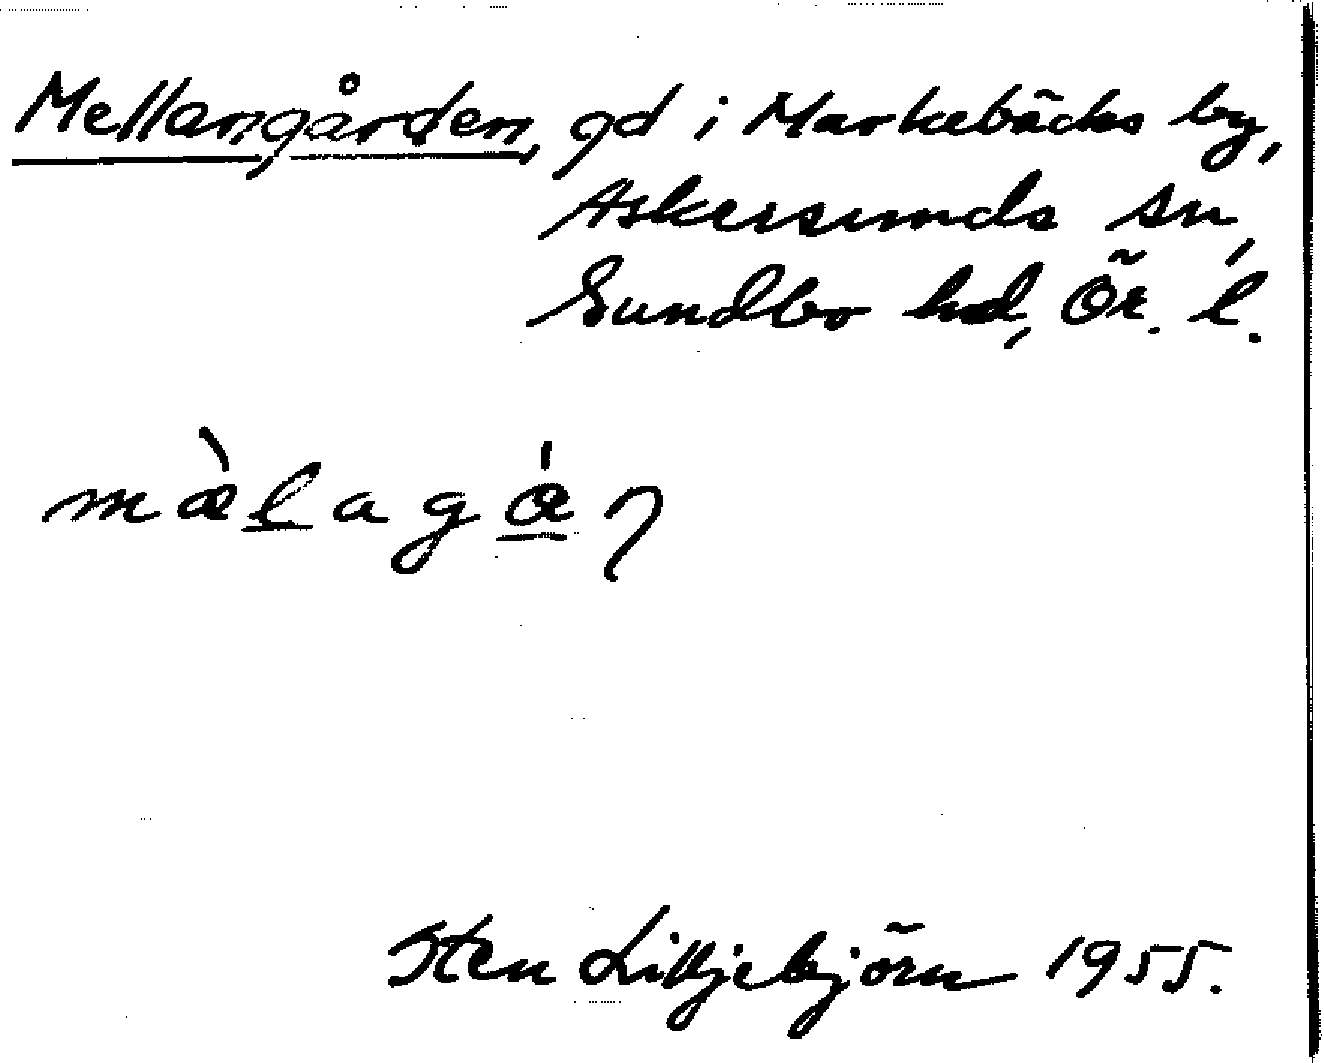 Mellangården, gd i Markebäcks by,
Askersunds sn,
Sundbo hd, Ör. l.
mæ̀l̲agɑ̲́ɳ
Sten Lilljebjörn 1955.